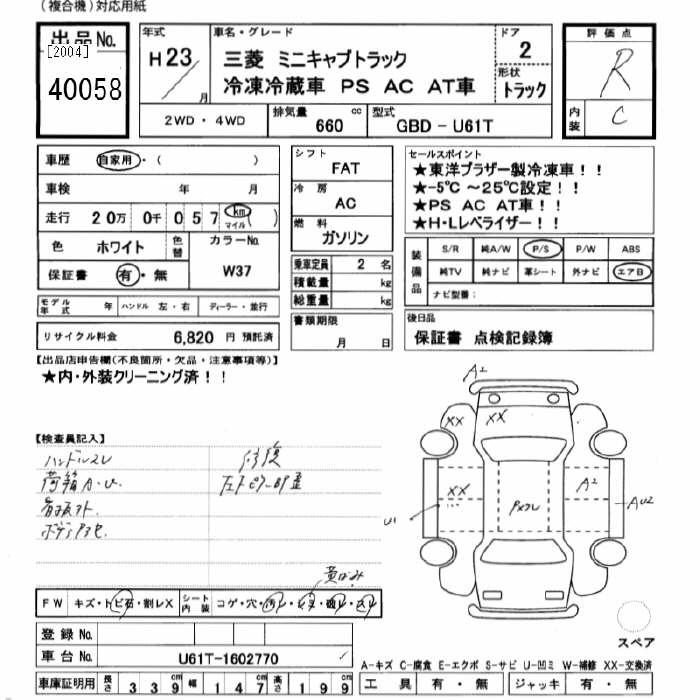 (複合機)対応用紙
出品No.
[2004]
40058
年式
H23/月
車名・グレード
三菱 ミニキャブトラック
冷凍冷蔵車 PS AC AT車
ドア
2
形状
トラック
評価点
R
内装
C
2WD・4WD
排気量 660 cc
型式 GBD-U61T
車歴 自家用・( )
車検 年 月
走行 20万0千057 km マイル( )
色 ホワイト 色替
カラーNo. W37
保証書 有・無
モデル年式 年 ハンドル 左・右 ディーラー・並行
リサイクル料金 6,820 円 預託済
シフト
FAT
冷房
AC
燃料
ガソリン
乗車定員 2 名
積載量 kg
総重量 kg
書類期限
月 日
セールスポイント
★東洋ブラザー製冷凍車!!
★-5℃~25℃設定!!
★PS AC AT車!!
★H・Lレベライザー!!
装備品
S/R 純A/W P/S P/W ABS
純TV 純ナビ 革シート 外ナビ エアB
ナビ型番:
後日品
保証書 点検記録簿
【出品店申告欄(不良箇所・欠品・注意事項等)】
★内・外装クリーニング済!!
【検査員記入】
ハンドルスレ
荷箱A・U.
修復
黄ばみ
FW キズ・トビ石・割レX
シート内装 コゲ・穴・汚レ・シミ・破レ・スレ
登録No.
車台No. U61T-1602770
車庫証明用 長さ 339cm 幅 147cm 高さ 199cm
A2
XX XX
XX
A2
U1
AU2
スペア
A-キズ C-腐食 E-エクボ S-サビ U-凹ミ W-補修 XX-交換済
工具 有・無 ジャッキ 有・無